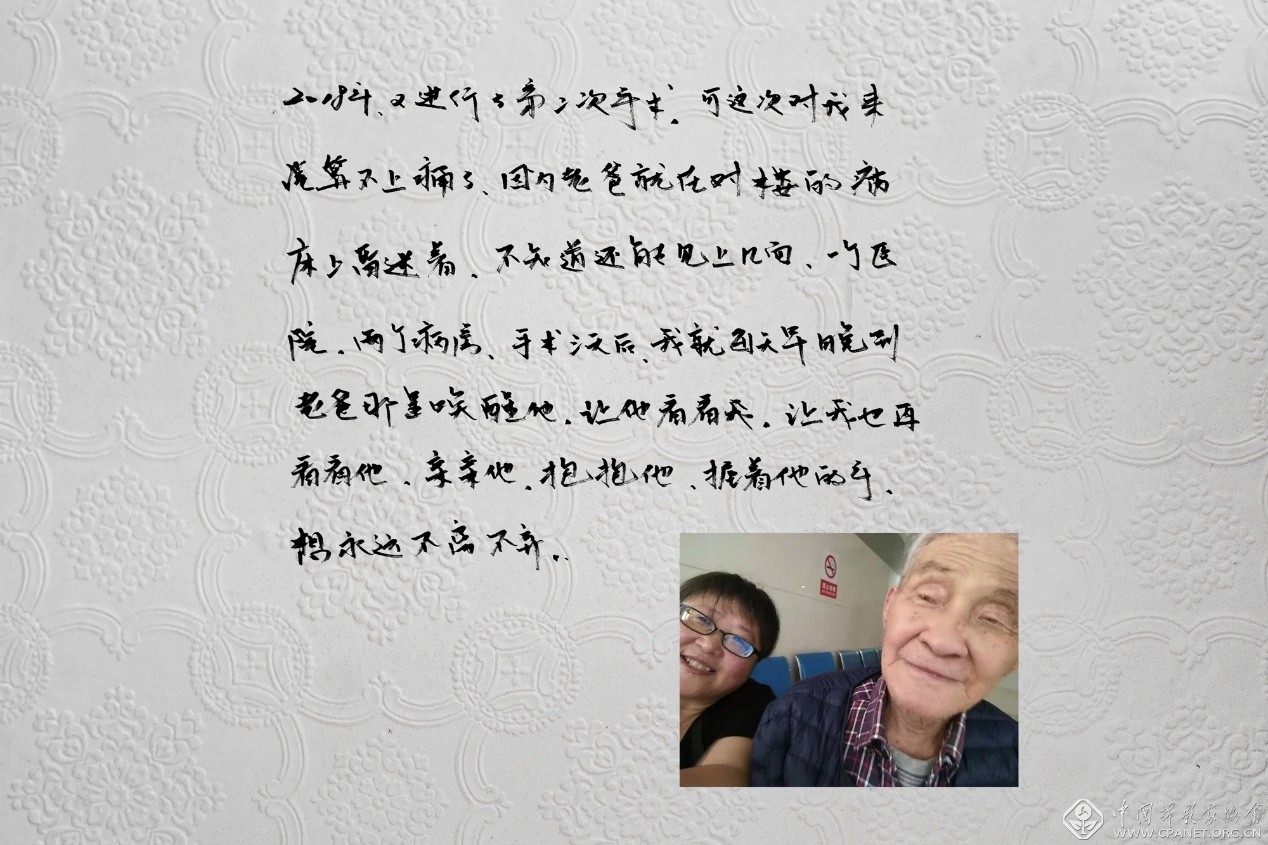 2018年、又进行了第二次手术。可这次对我来
说算不上痛了、因为老爸就在对楼的病
床上昏迷着、不知道还能见上几面、一个医
院、两个病房、手术没后、我就每天早晚到
老爸那里唤醒他、让他看看我。让我也再
看看他、亲亲他、抱抱他、握着他的手、
想永远不离不弃..
中国摄影家协会
WWW.CPANET.ORG.CN